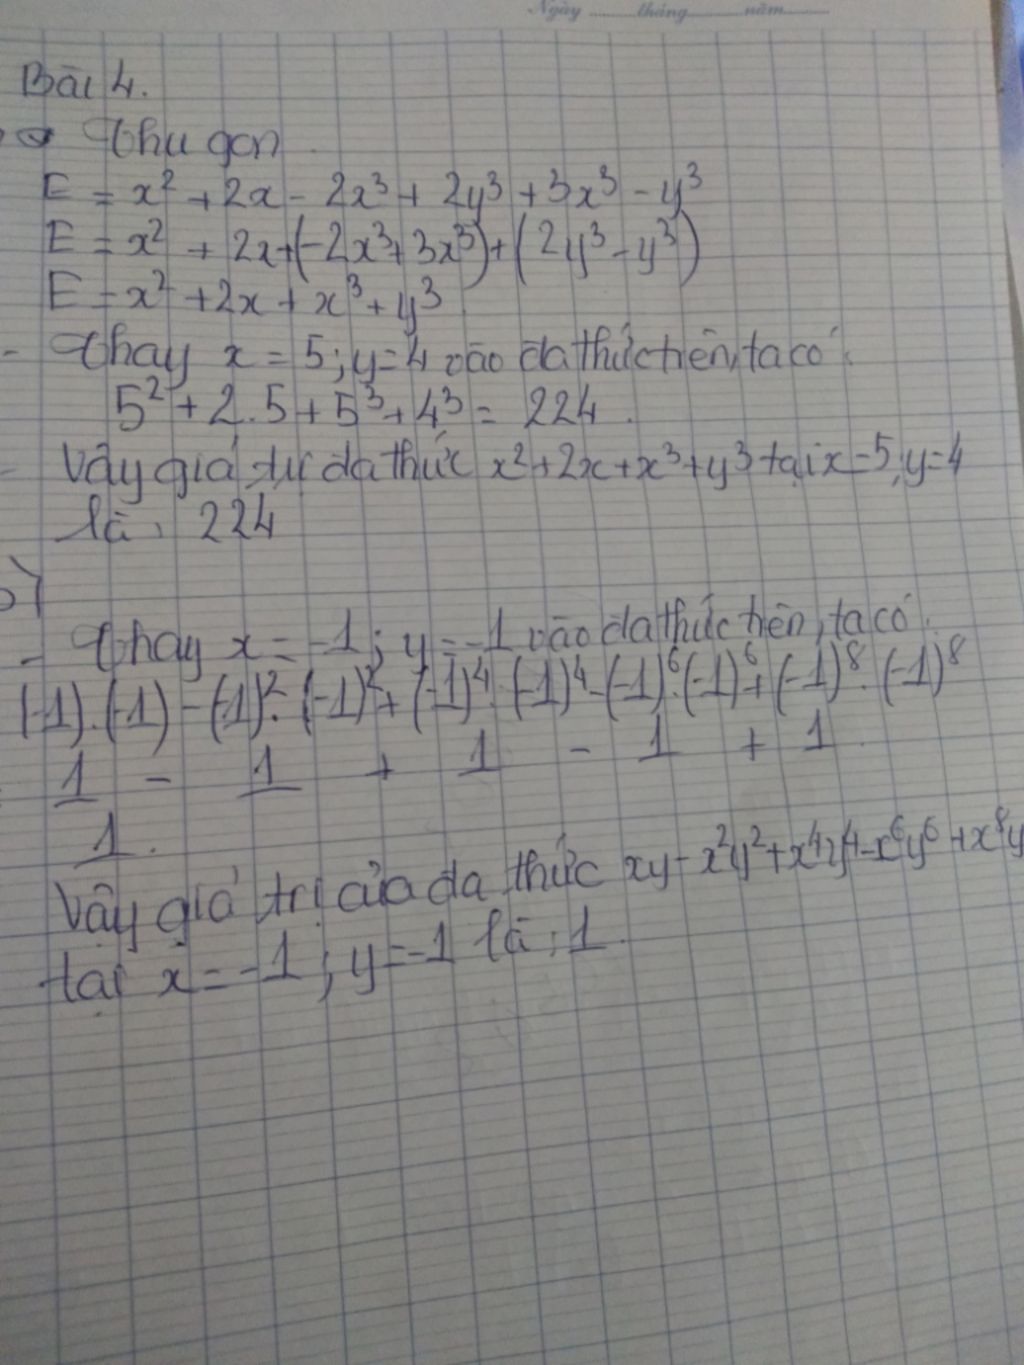 Ngày ........ tháng ........ năm ........
Bài 4.
Thu gọn
E = x² + 2x - 2x³ + 2y³ + 3x³ - y³
E = x² + 2x + (-2x³ + 3x³) + (2y³ - y³)
E = x² + 2x + x³ + y³
- Thay x = 5; y = 4 vào đa thức trên, ta có:
5² + 2.5 + 5³ + 4³ = 224.
- Vậy giá trị đa thức x² + 2x + x³ + y³ tại x = 5; y = 4
là: 224
b)
- Thay x = -1; y = -1 vào đa thức trên, ta có:
(-1).(-1) - (-1)².(-1)² + (-1)⁴.(-1)⁴ - (-1)⁶.(-1)⁶ + (-1)⁸.(-1)⁸
1 - 1 + 1 - 1 + 1
1.
Vậy giá trị của đa thức xy - x²y² + x⁴y⁴ - x⁶y⁶ + x⁸y
tại x = -1; y = -1 là: 1.